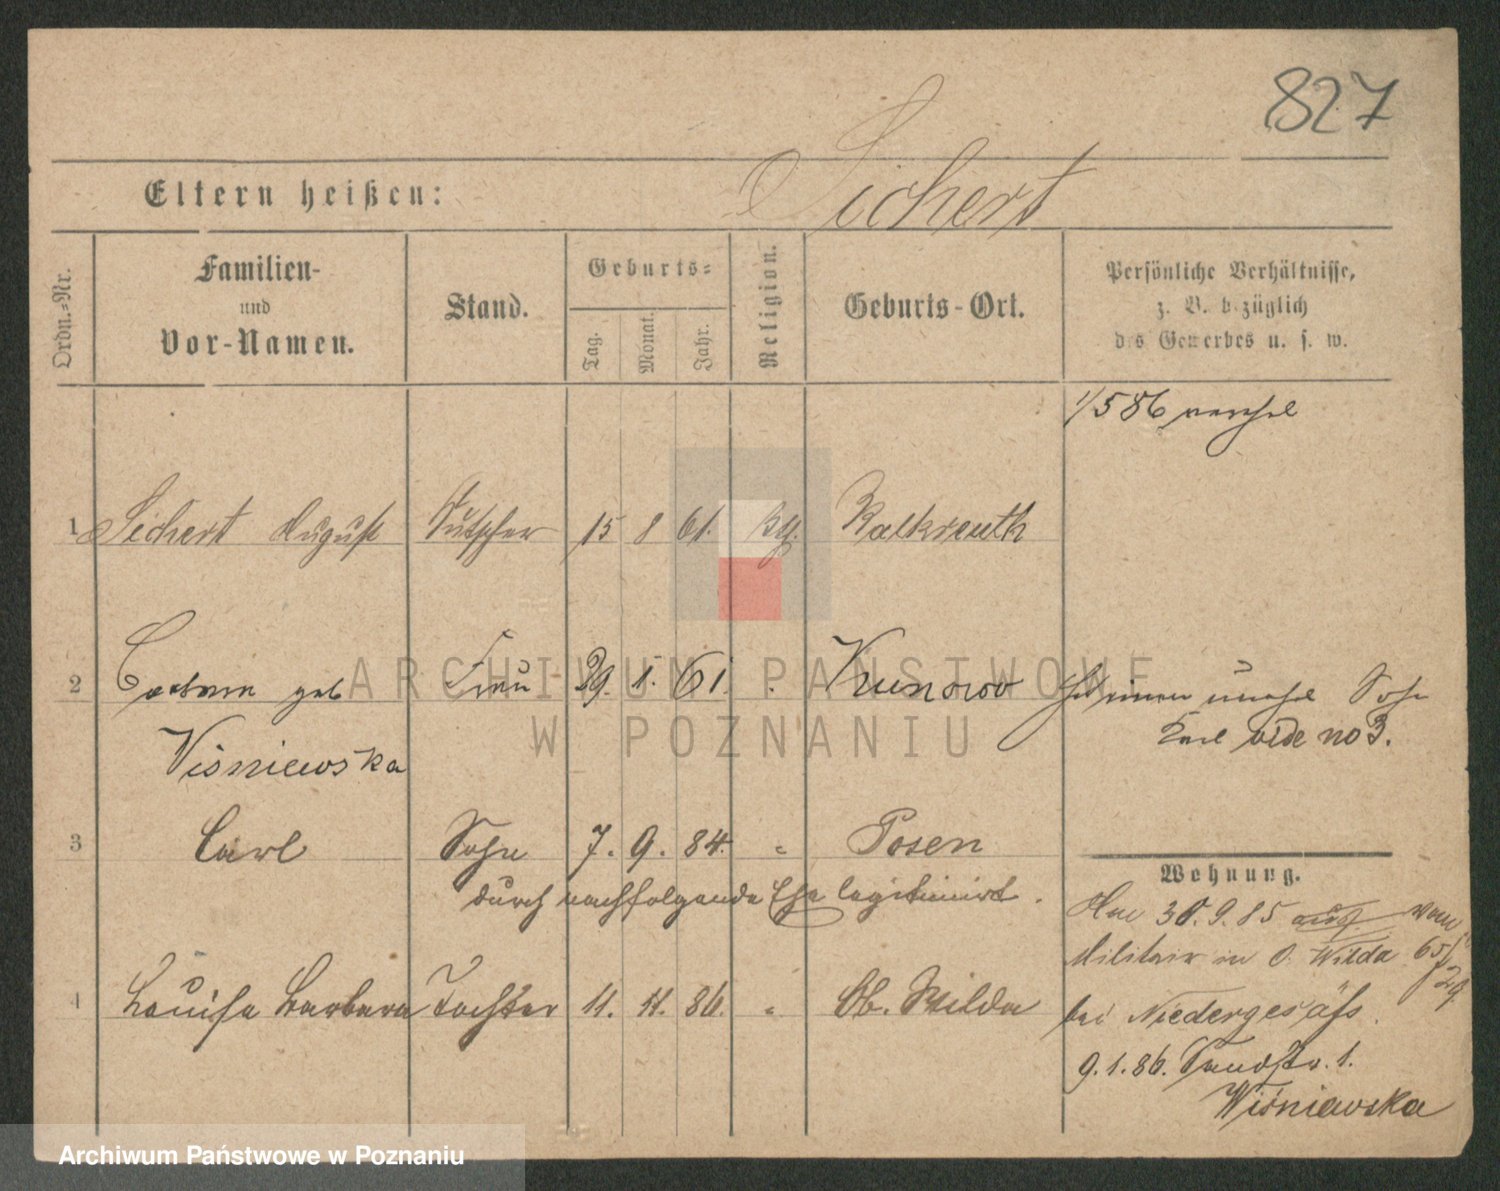 827
Eltern heißen: Sichert
Ordn.-Nr.
Familien-
und
Vor-Namen.
Stand.
Geburts-
Tag.
Monat.
Jahr.
Religion.
Geburts-Ort.
Persönliche Verhältnisse,
z. B. bezüglich
des Gewerbes u. s. w.
1/5 86
1 Sichert August 15 8 61. Kalkreuth
2 geb Frau 29. 1. 61. Kunowo
Wiśniewska
vide no 3.
3 Carl Sohn 7. 9. 84. " Posen
durch nachfolgende Ehe legitimirt.
Wohnung.
30.9.85 aus vom
Militair in O. Wilda 65/29
4 Louise Barbara Tochter 11. 11. 86. " Ob. Wilda
bei Niedergesäss.
9.1.86. Sandstr. 1.
Wiśniewska
ARCHIWUM PAŃSTWOWE
W POZNANIU
Archiwum Państwowe w Poznaniu